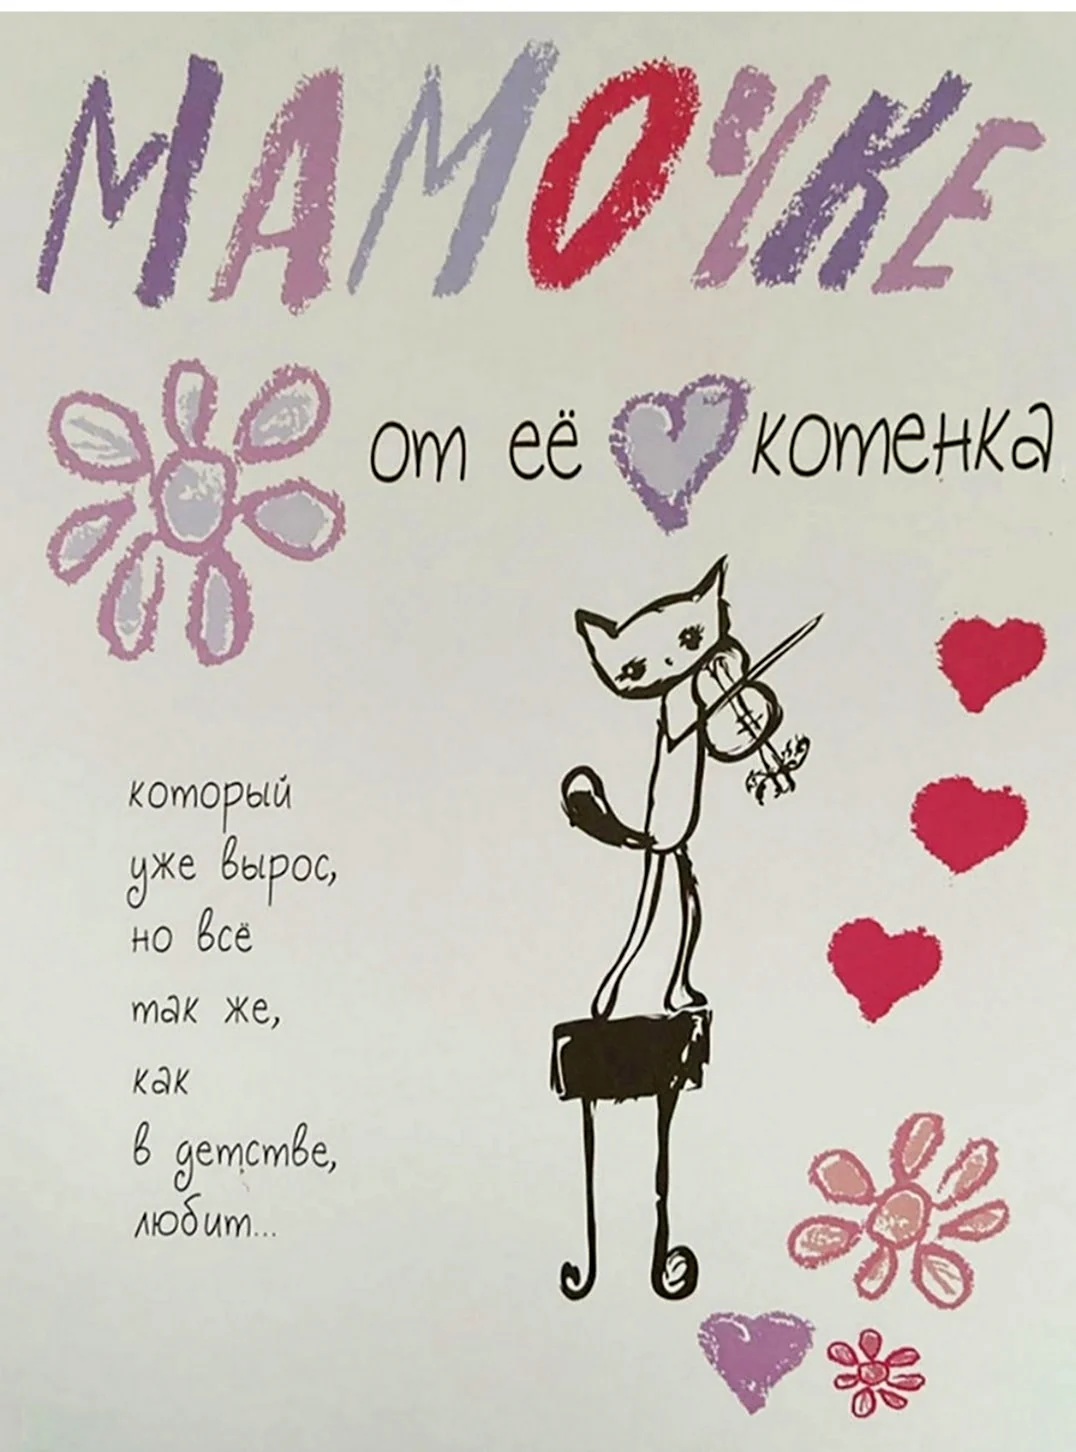 МАМОЧКЕ
от её котенка
который
уже вырос,
но всё
так же,
как
в детстве,
любит...